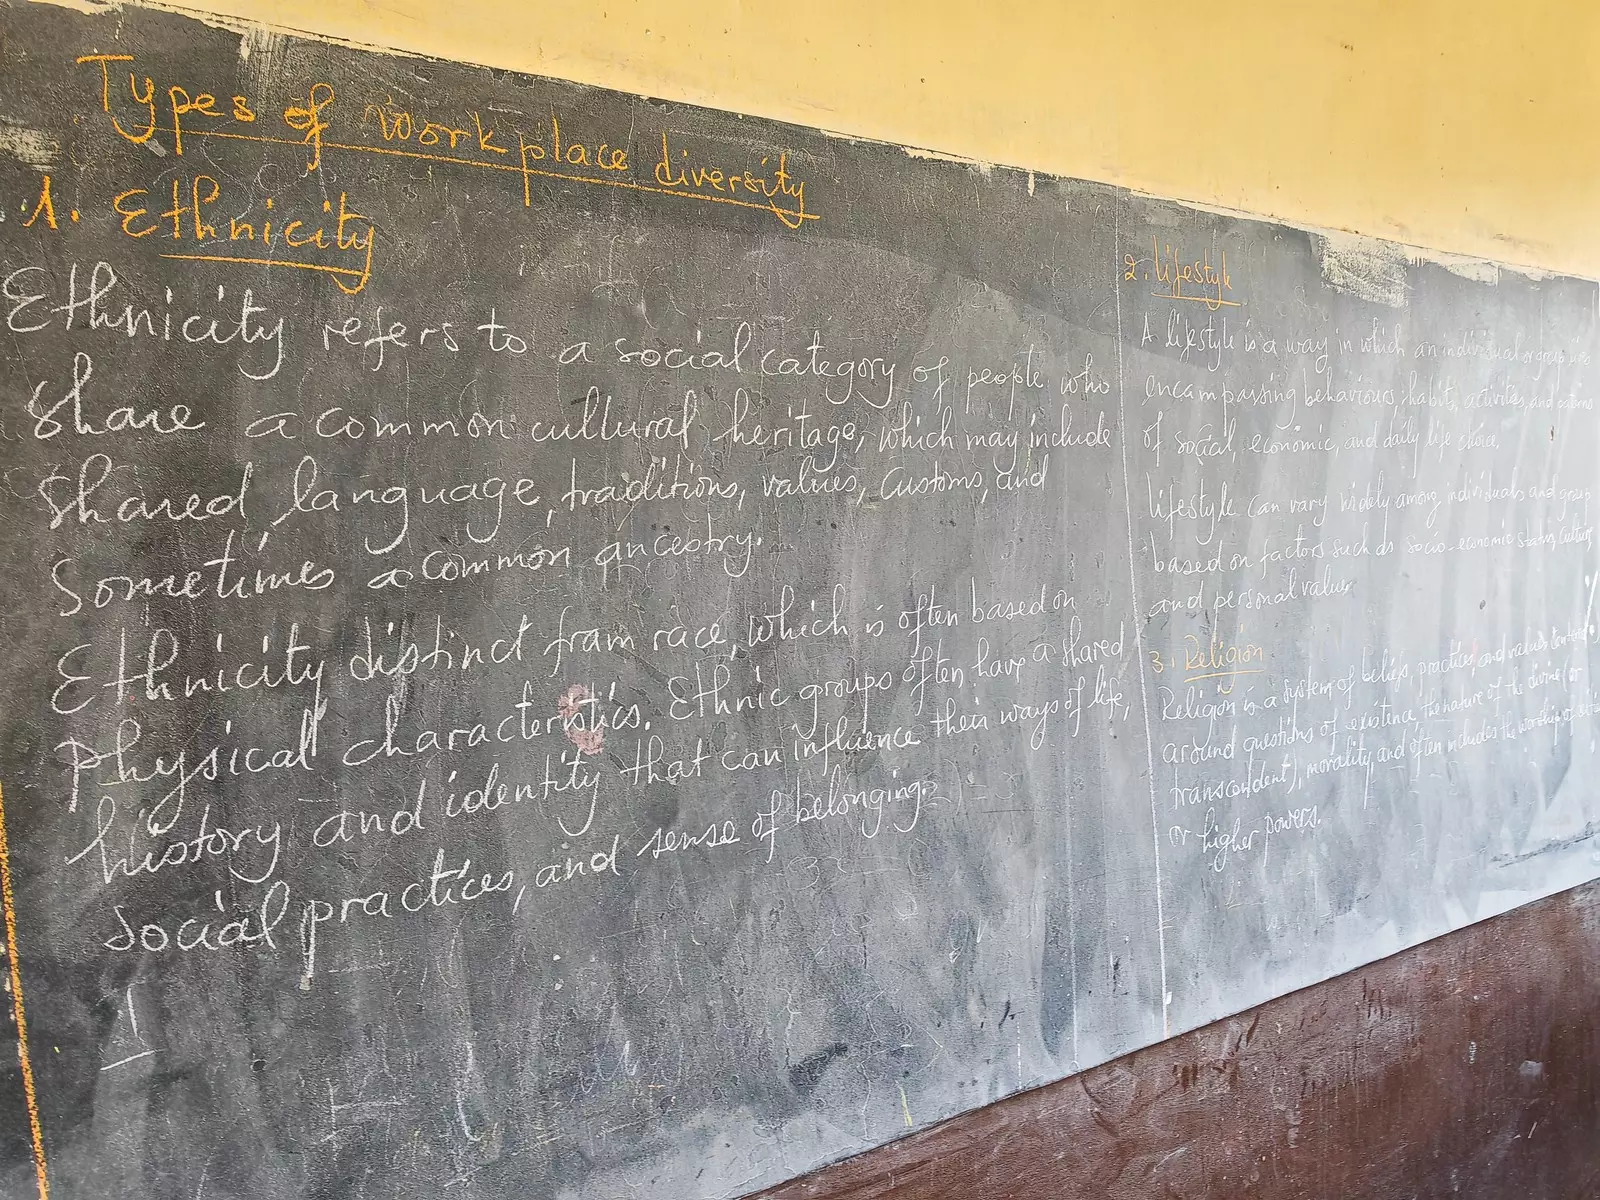 Types of workplace diversity
1. Ethnicity
Ethnicity refers to a social category of people who
share a common cultural heritage, which may include
shared language, traditions, values, customs, and
Sometimes a common ancestry.
Ethnicity distinct from race, which is often based on
physical characteristics. Ethnic groups often have a shared
history and identity that can influence their ways of life,
social practices, and sense of belonging.
2. lifestyle
A lifestyle is a way in which an individual or group lives
encompassing behaviours, habits, activities, and patterns
of social, economic, and daily life choice.
lifestyle can vary widely among individuals and group
based on factors such as socio-economic status, culture,
and personal values
3. Religion
Religion is a system of beliefs, practices, and values
around questions of existence, the nature of the divine (or
transcendent), morality, and often includes the worship of
or higher powers.